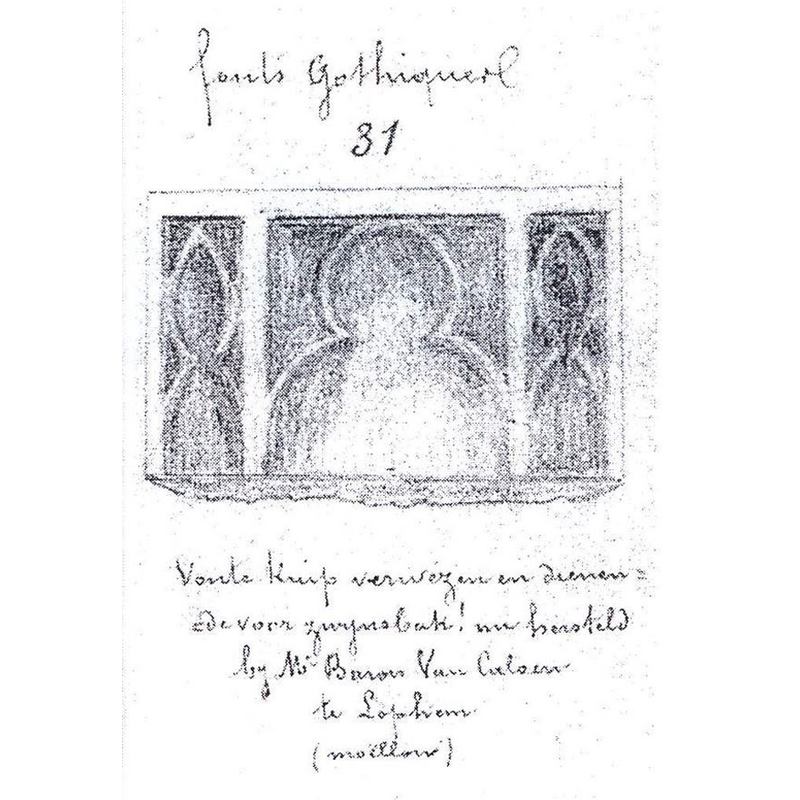 fonts Gothiques
31
Vonte Kuip verwezen en dienen=
=de voor zwynsbak! nu hersteld
by Mr Baron Van Caloen
te Lophem
(moëllon)